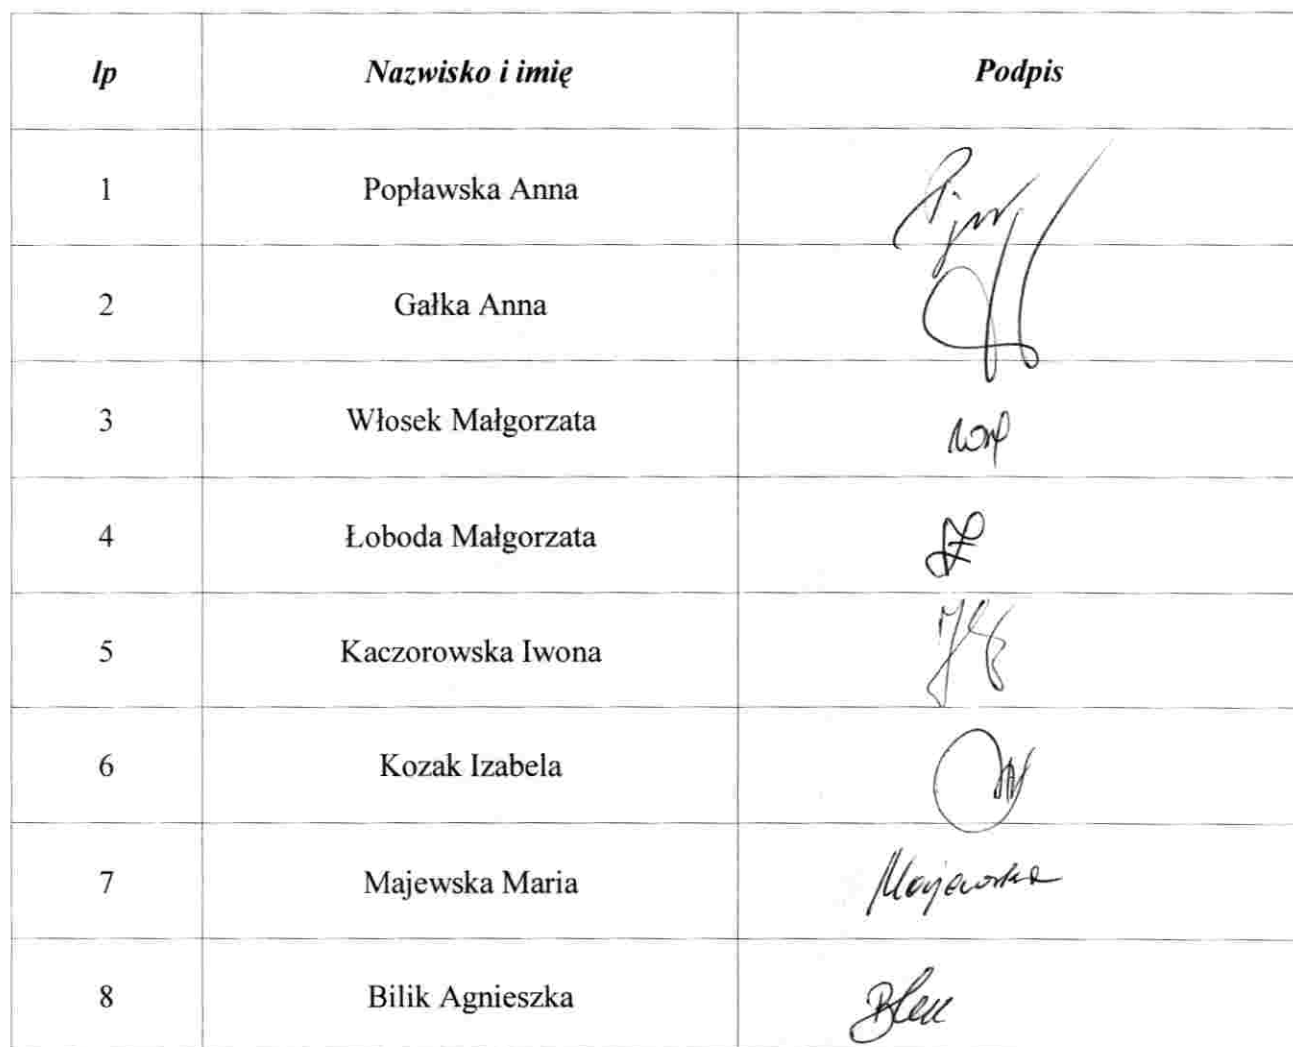 lp Nazwisko i imię Podpis
1 Popławska Anna
2 Gałka Anna
3 Włosek Małgorzata
4 Łoboda Małgorzata
5 Kaczorowska Iwona
6 Kozak Izabela
7 Majewska Maria Majewska
8 Bilik Agnieszka